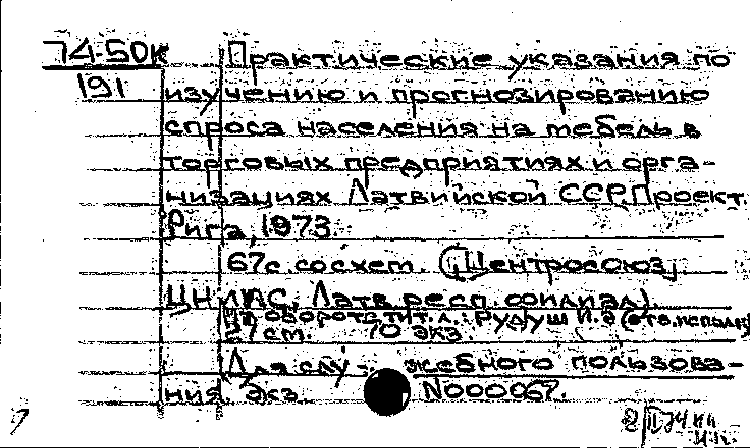 74-50к
191
Практические указания по
изучению и прогнозированию
спроса населения на мебель в
торговых предприятиях и орга-
низациях Латвийской ССР. Проект.
Рига, 1973.
67с. со схем. (Центросоюз,
ЦНИЛПС, Латв. респ. филиал).
На обороте тит. л.: Рудуш И.Э (отв. исполн)
ст. 70 экз.
Для слу- жебного пользова-
ния. экз. N000067.